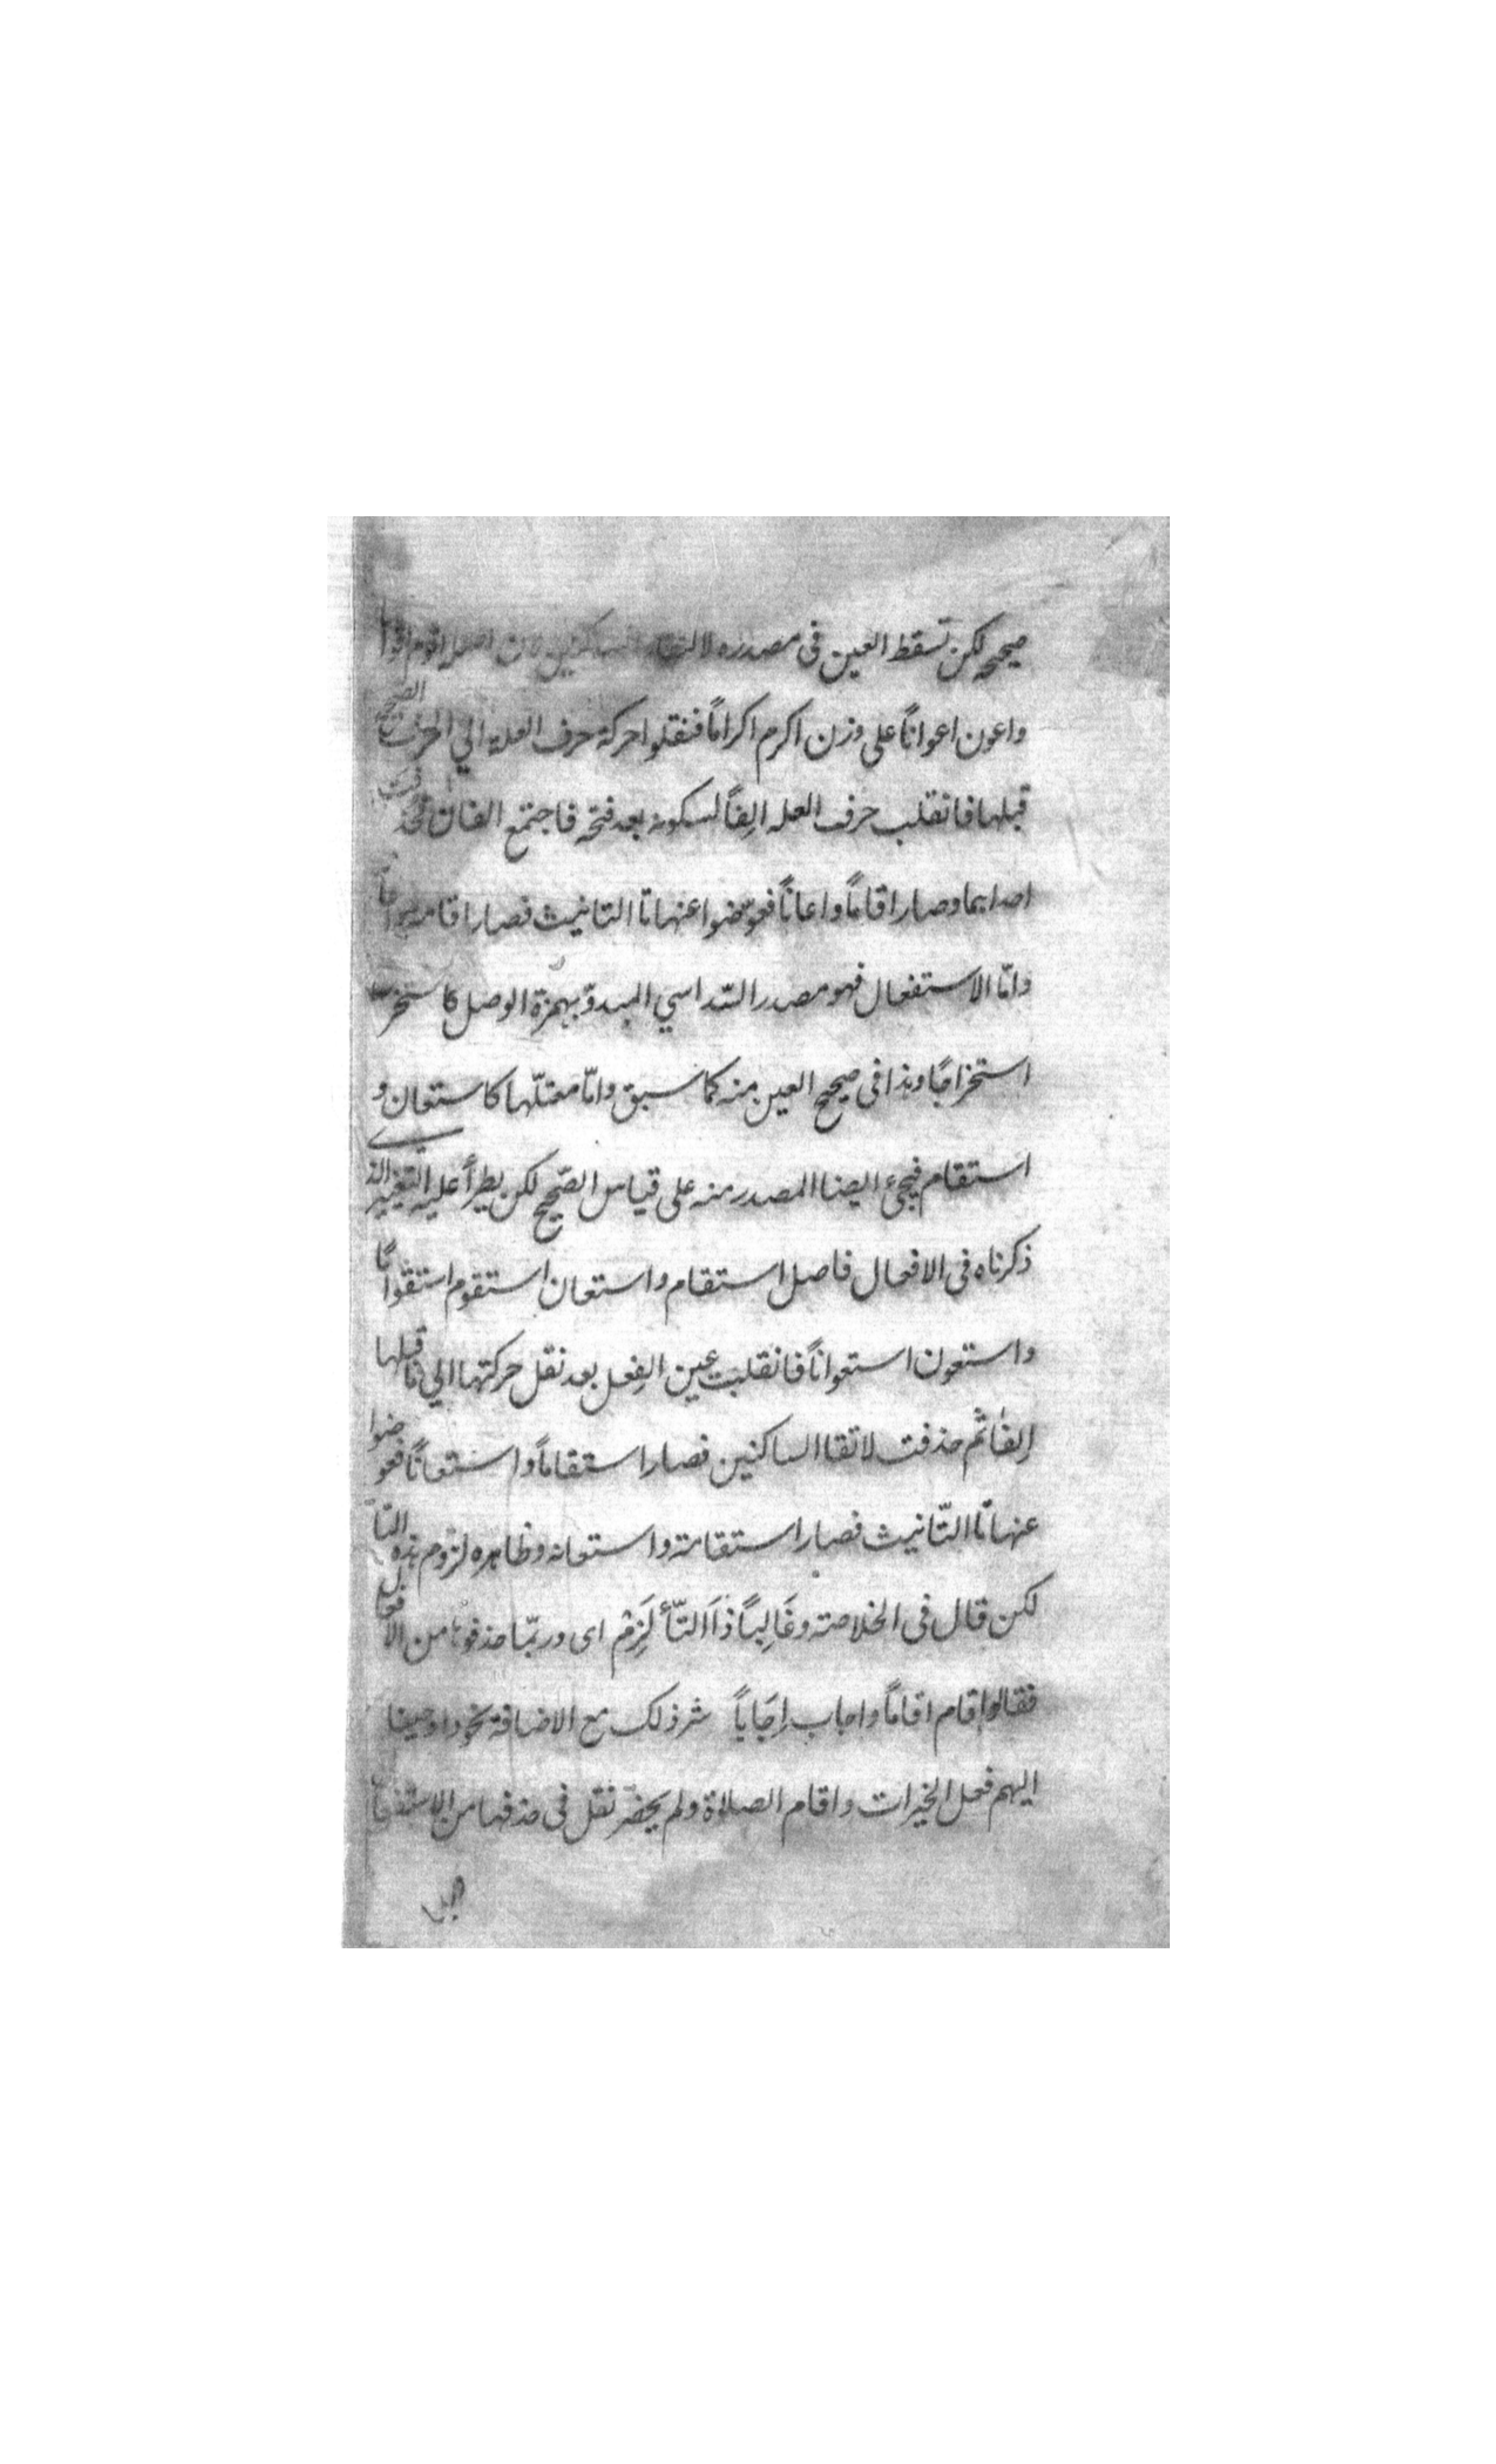 صحيحه لكن تسقط العين فى مصدره لالتقاء الساكنين لان اصل اقوم اقواما
واعون اعوانًا على وزن اكرم اكرامًا فنقلوا حركة حرف العلة الي الحرف الصحيح
قبلها فانقلب حرف العله الِفًا لسكونه بعد فتحه فاجتمع الفان فحذفت
احداهما وصار اقامًا واعانًا فعوّضوا عنها تا التانيث فصار اقامة
وامّا الاستفعال فهو مصدر السّداسي المبدوّ بهمزة الوصل كاستخرج
استخراجًا وهذا فى صحيح العين منه كما سبق وامّا معتلّها كاستعان و
استقام فيجئ ايضا المصدر منه على قياس الصّحيح لكن يطرأ عليه التغيير الذي
ذكرناه فى الافعال فاصل استقام واستعان استقوم استقوامًا
واستعون استعوانًا فانقلبت عين الفِعل بعد نقل حركتها الي ما قبلها
اِلفًا ثم حذفت لاتقا الساكنين فصار استقامًا واستعانًا فعوضوا
عنها تا التّانيث فصار استقامة واستعانه وظاهره لزوم هذه التا
لكن قال فى الخلاصته وغَالِبًا ذَا التّأ لَزِمْ اى وربّما حذفوها من الافعال
فقالوا اقام اقامًا واجاب اِجَابًا كثر ذلك مع الاضافة نحو واوحينا
اليهم فعل الخيرات واقام الصلاة ولم يحضر نقل فى حذفها من الاستفعال